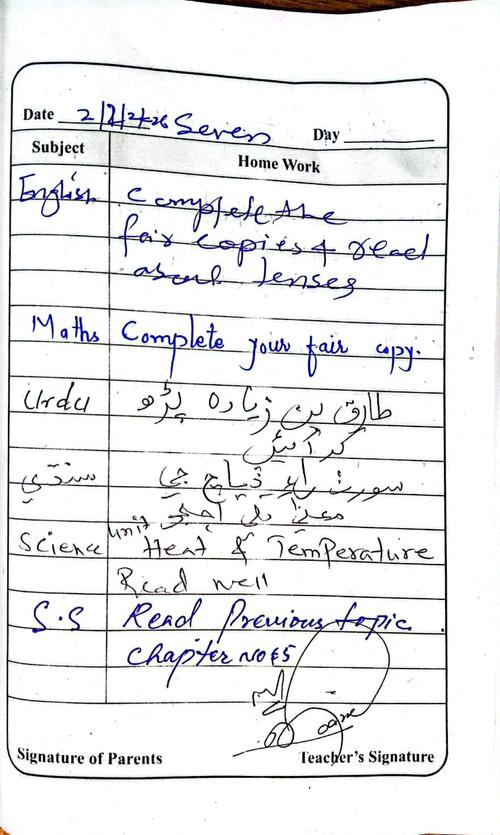 Date 2/2/2026 Seven Day
Subject Home Work
English Complete the
fair copies & read
about tenses
Maths Complete your fair copy.
Urdu طارق بن زیاد پڑھ
کر آئیں
سنڌي سورٺ راءِ ڏياچ جي
معنيٰ ياد ڪري اچجو
Science unit Heat & Temperature
Read well
S.S Read Previous topic.
Chapter No 5
Signature of Parents Teacher's Signature